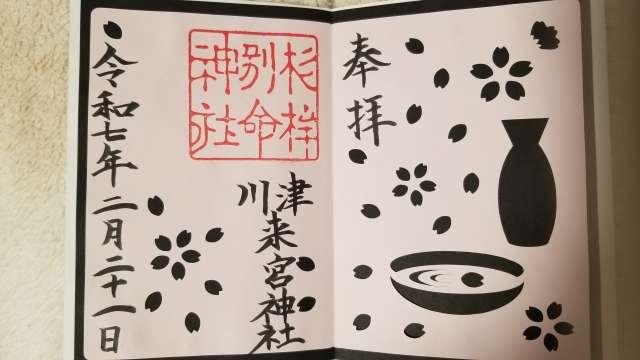 奉拝
杉桙
別命
神社
川津来宮神社
令和七年二月二十一日